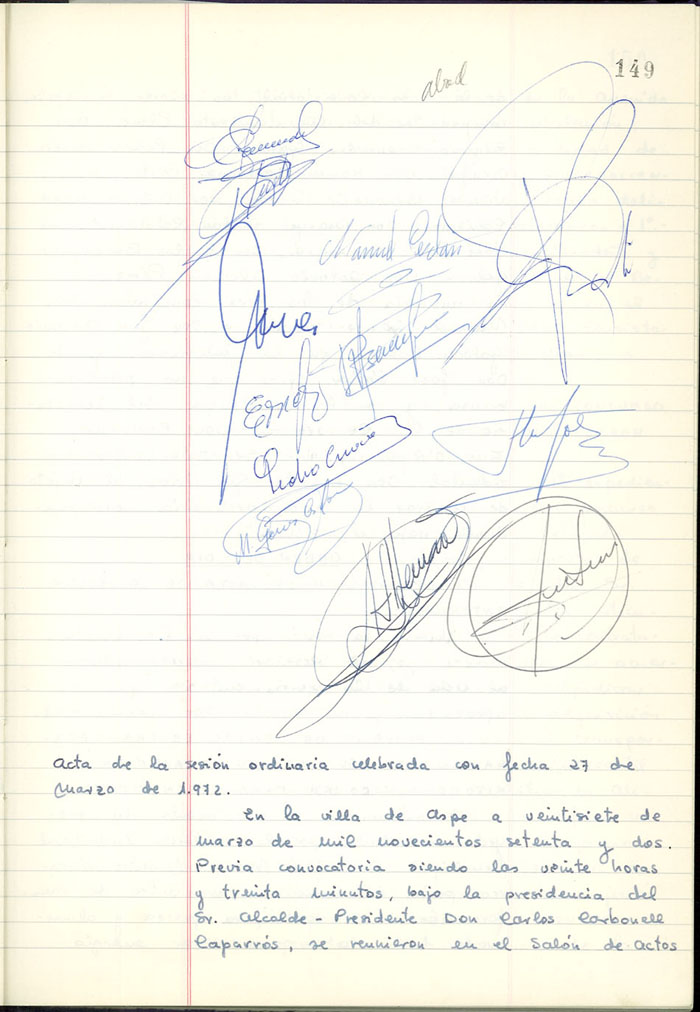 149
abad
Manuel Cerdán
Pedro
Acta de la sesión ordinaria celebrada con fecha 27 de
Marzo de 1.972.
En la villa de Aspe a veintisiete de
marzo de mil novecientos setenta y dos.
Previa convocatoria siendo las veinte horas
y treinta minutos, bajo la presidencia del
Sr. Alcalde - Presidente Don Carlos Carbonell
Caparrós, se reunieron en el Salón de Actos